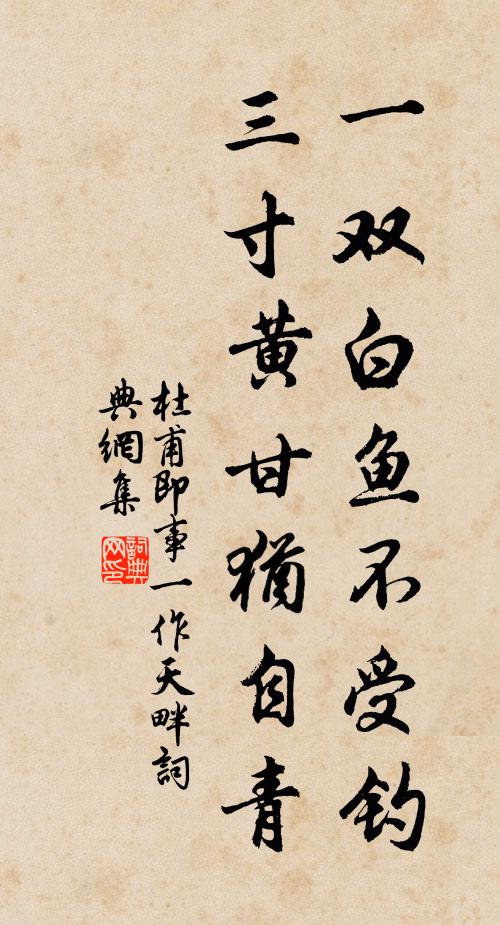 一双白鱼不受钓
三寸黄甘犹自青
杜甫即事一作天畔詞
典網集
詞典
网印